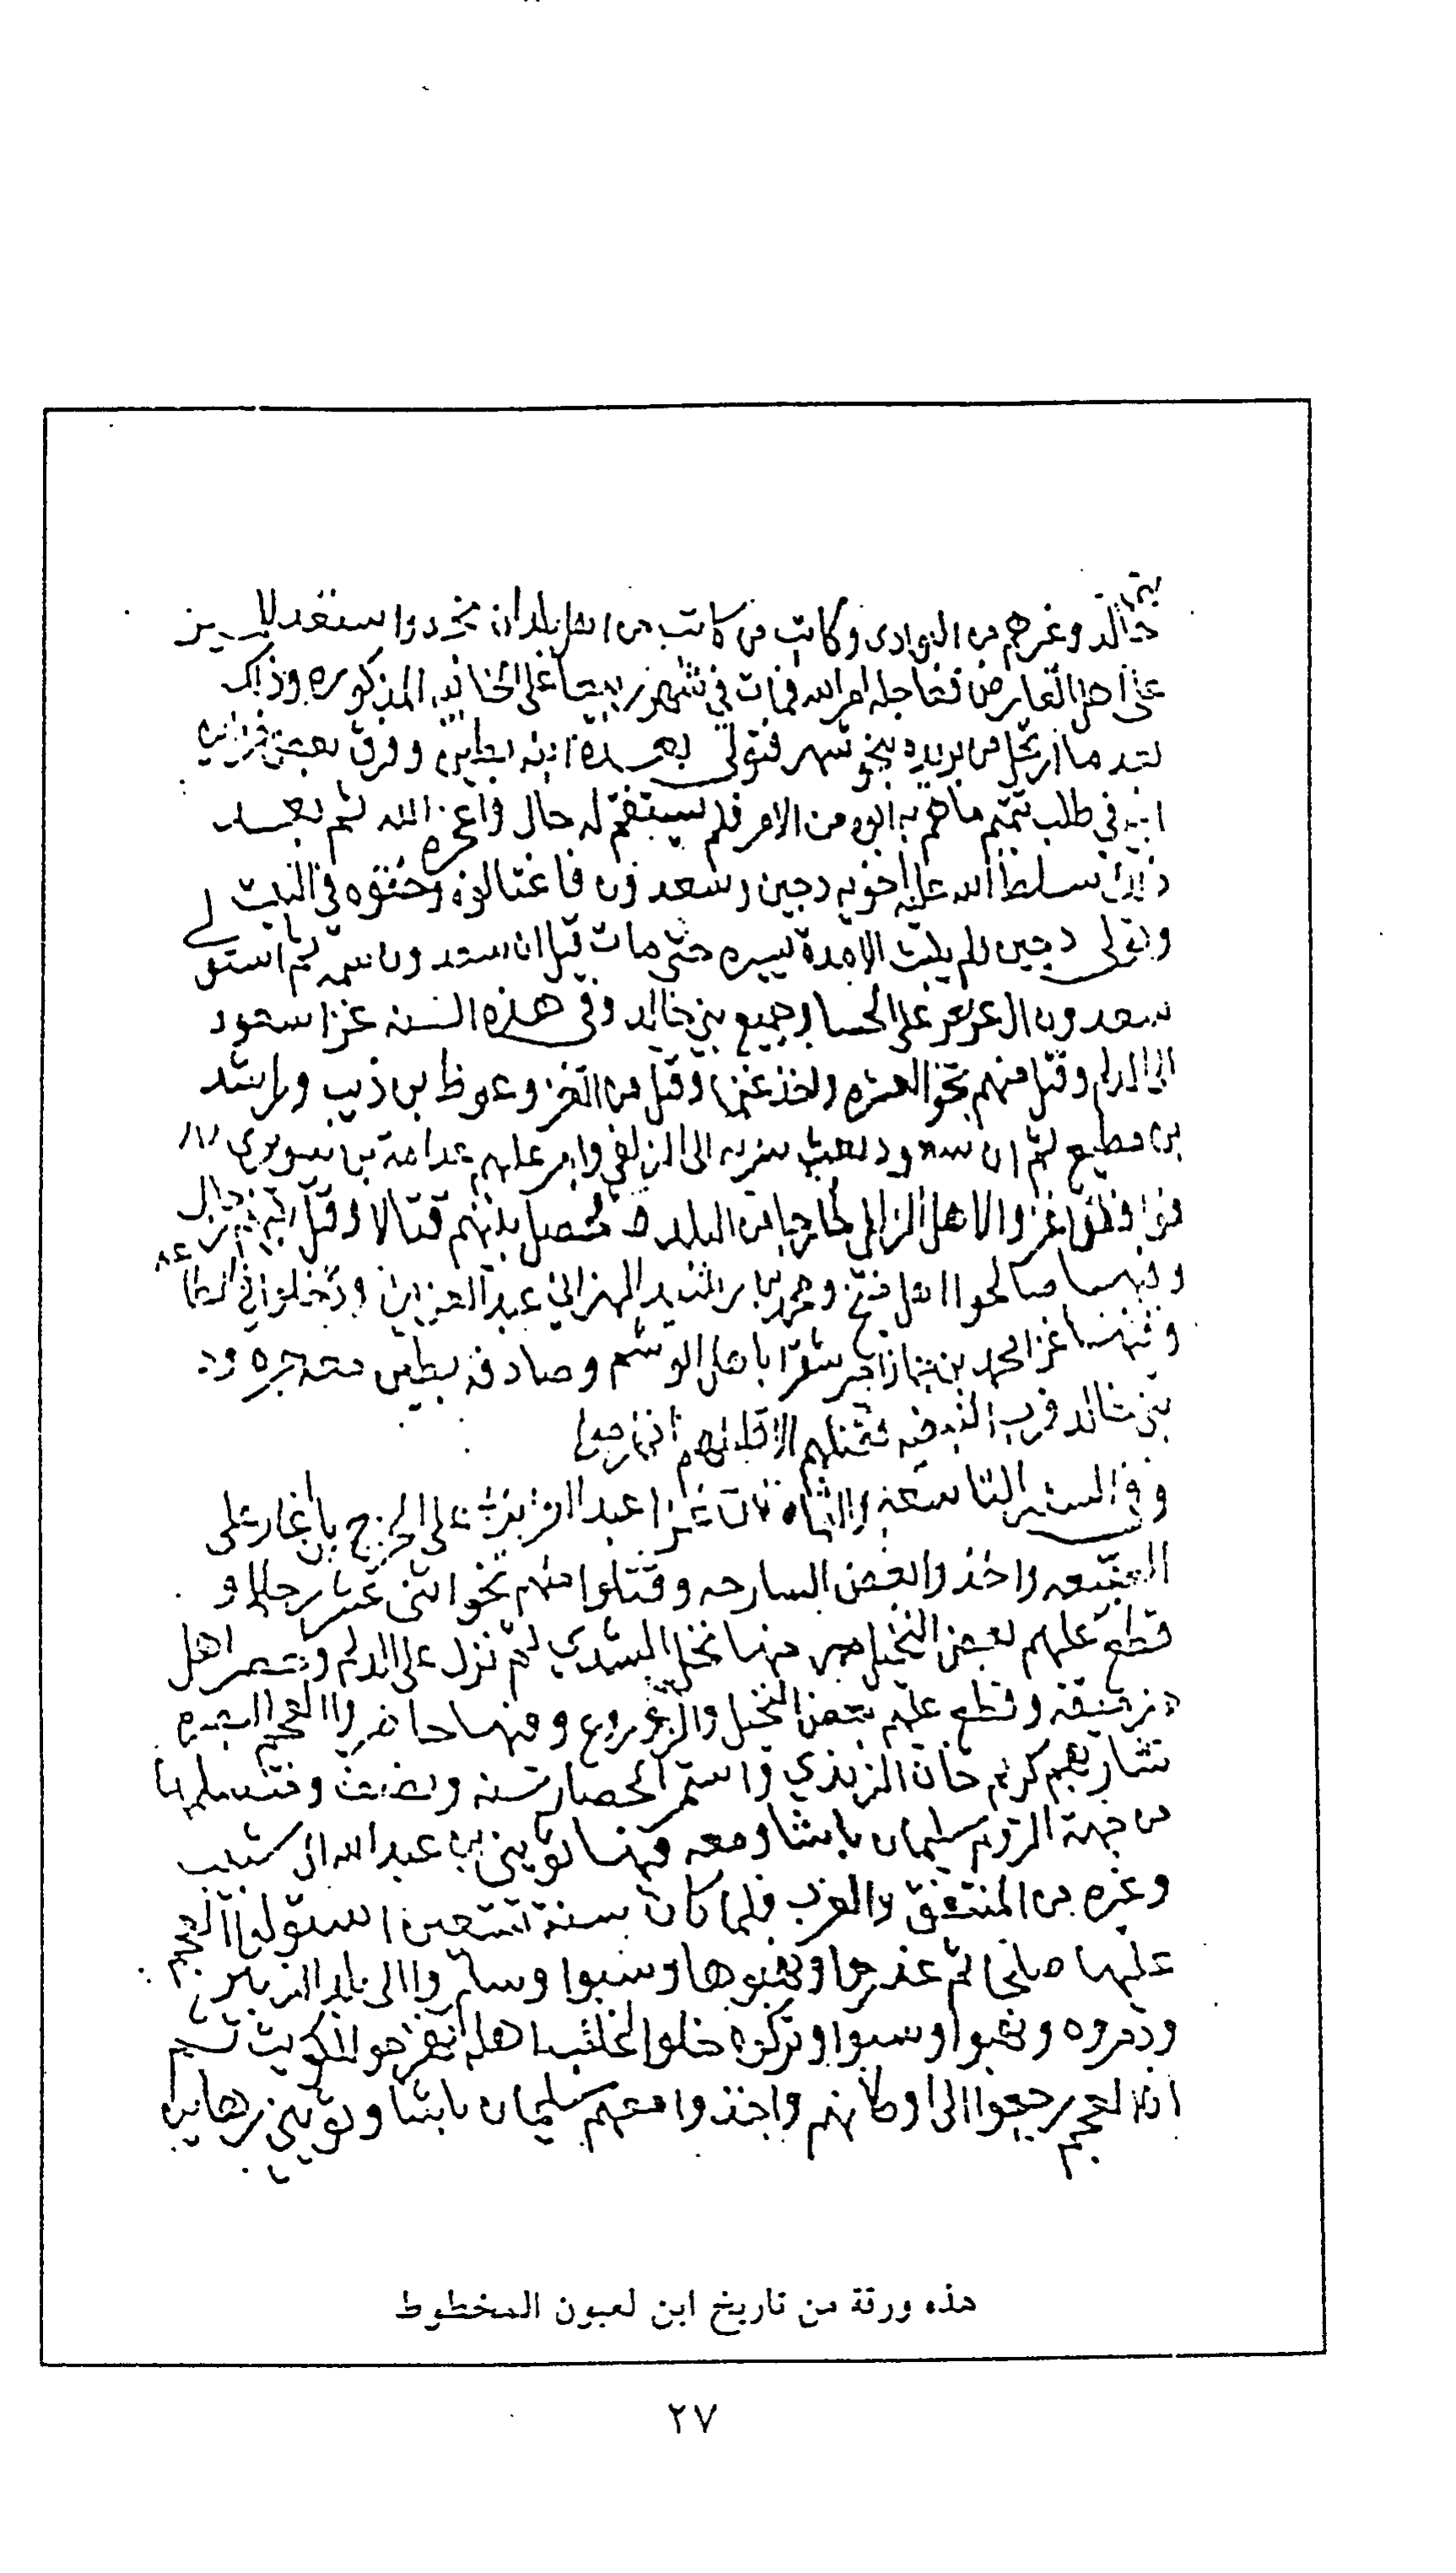 بني
خالد وغيرهم من البوادي وكاتب من كاتب من اهل بلدان نجد واستعد
على اهل العارض فعاجله امر الله فمات في شهور ربيعا على الخابيه المذكوره وذلك
بعد ما ارتحل من بريده بنحو شهر فتولى بعده ابنه بطين وفرق بعض خزاين
ابيه في طلب تتميم ما هم به ابوه من الامر فلم يستقم له حال واعجزه الله ثم بعد
ذلك سلط الله عليه اخويه دجين وسعدون فاغتالوه وخنقوه في البيت
وتولى دجين ولم يلبث الا مدة يسيره حتى مات قيل ان سعدون سمه ثم استولى
سعدون ال عريعر على الحسا وجميع بني خالد وفي هذه السنه غزا سعود
الى الدلم وقتل منهم نحو العشره واخذ غنما وقتل من الغزو عوض بن ذيب وراشد
بن مطيع ثم ان سعود بعث سريه الى الزلفي وامر عليهم عدامة بن سويري
غزوا لاهل الزلفي خارجا من البلد فحصل بينهم قتالا وقتل رجال
وفيها صالحوا اهل وحمد بن راشد الهزاني عبد العزيز ودخلوا في
وفيها غزا محمد بن جماز امير شقرا باهل الوشم وصادفه بطين معه جرده
بني خالد قرب النبقيه فقتلهم الا قليل منهم انهزموا
وفي السنه التاسعه والثمانون غزا عبد العزيز على الخرج بان اغار على
الضبيعه واخذوا بعض السارحه وقتلوا منهم نحو اثني عشر رجلا و
قطع عليهم بعض النخيل منها نخل الشدي ثم نزل على الدلم وحصر اهل
نزميقه وقطع عليهم بعض النخيل والزروع وفيها حاصروا العجم البصره
كريم خان الزندي واستمر الحصار سنه ونصف ومتسلمها
من جهة الروم سليمان باشا ومعه فيها ثويني بن عبد الله ال شبيب
وغيره من المنتفق والعرب فلما كان سنة تسعين استولوا العجم
عليها صلحا ثم غدروا ونهبوها وسبوا وساروا الى بلد الزبير
ودمروه ونهبوا وسبوا وتركوه خاليا اهله الكويت ثم
ان العجم رجعوا الى اوطانهم واخذوا معهم سليمان باشا وثويني رهاين
هذه ورقة من تاريخ ابن لعبون المخطوط
٢٧